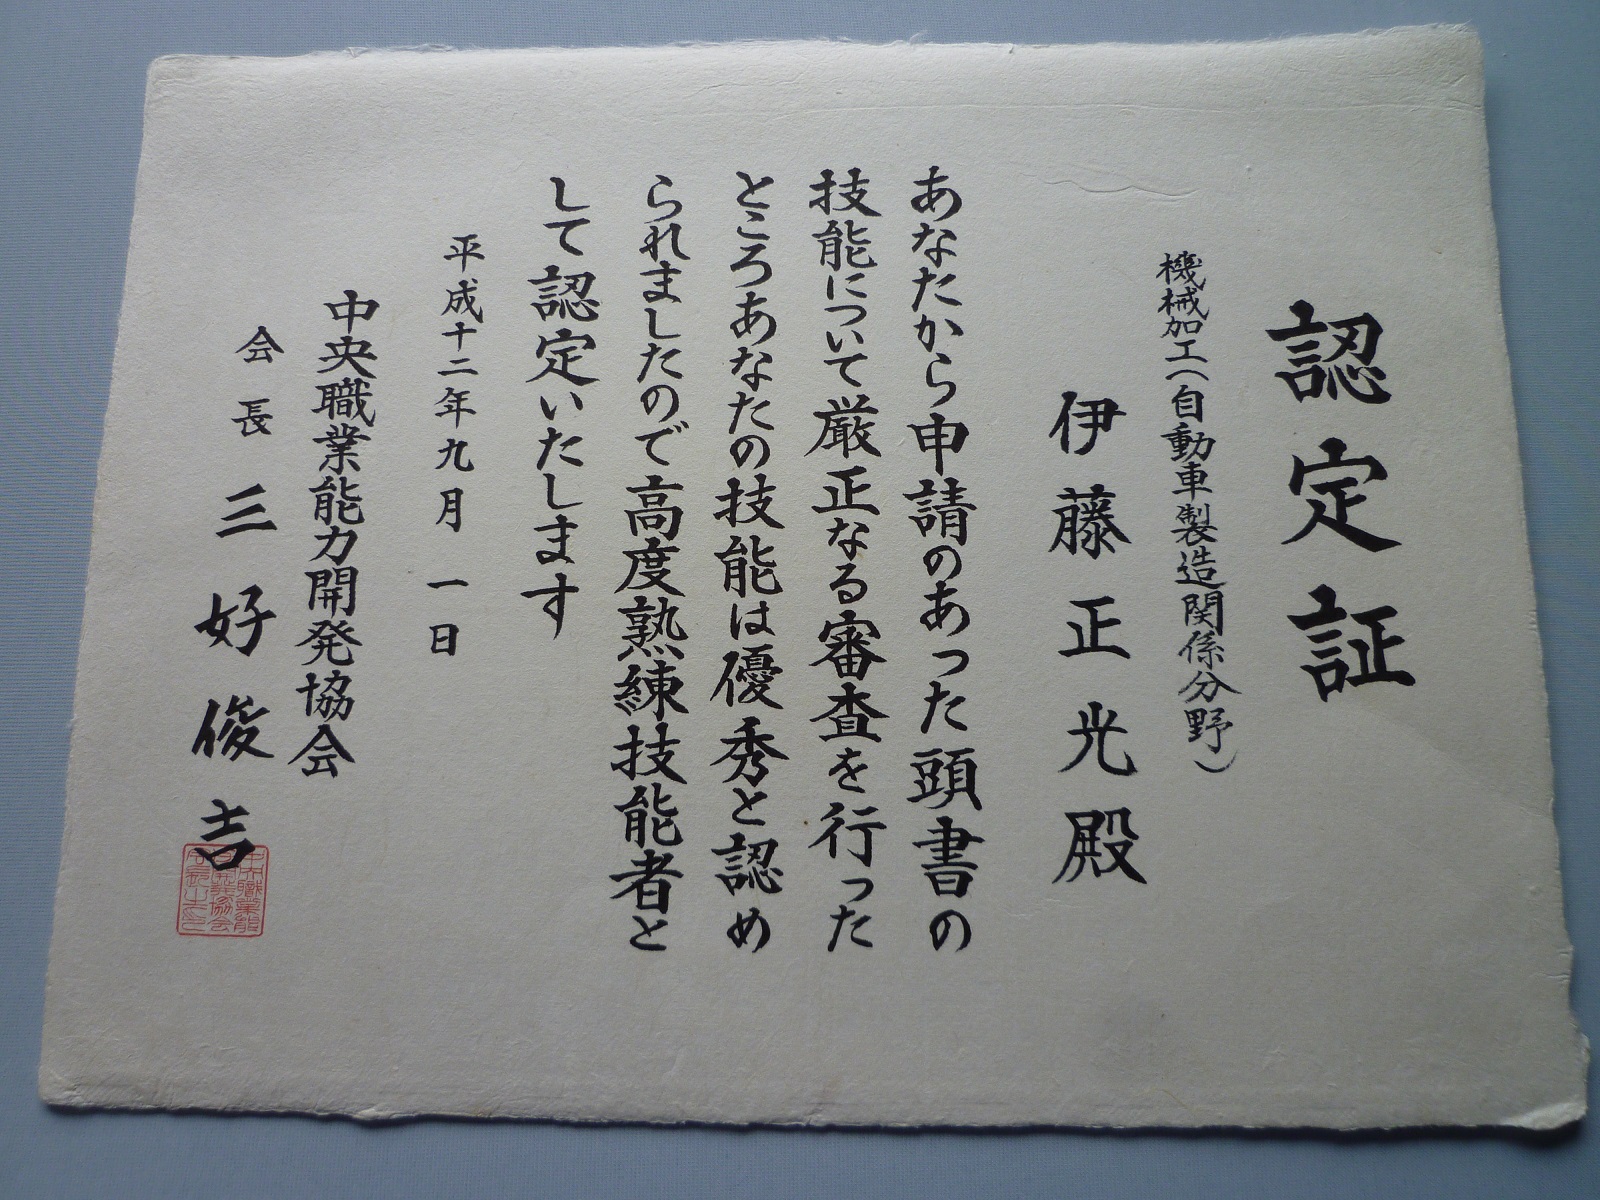 認定証
機械加工(自動車製造関係分野)
伊藤正光殿
あなたから申請のあった頭書の
技能について厳正なる審査を行った
ところあなたの技能は優秀と認め
られましたので高度熟練技能者と
して認定いたします
平成十二年九月一日
中央職業能力開発協会
会長 三好俊吉